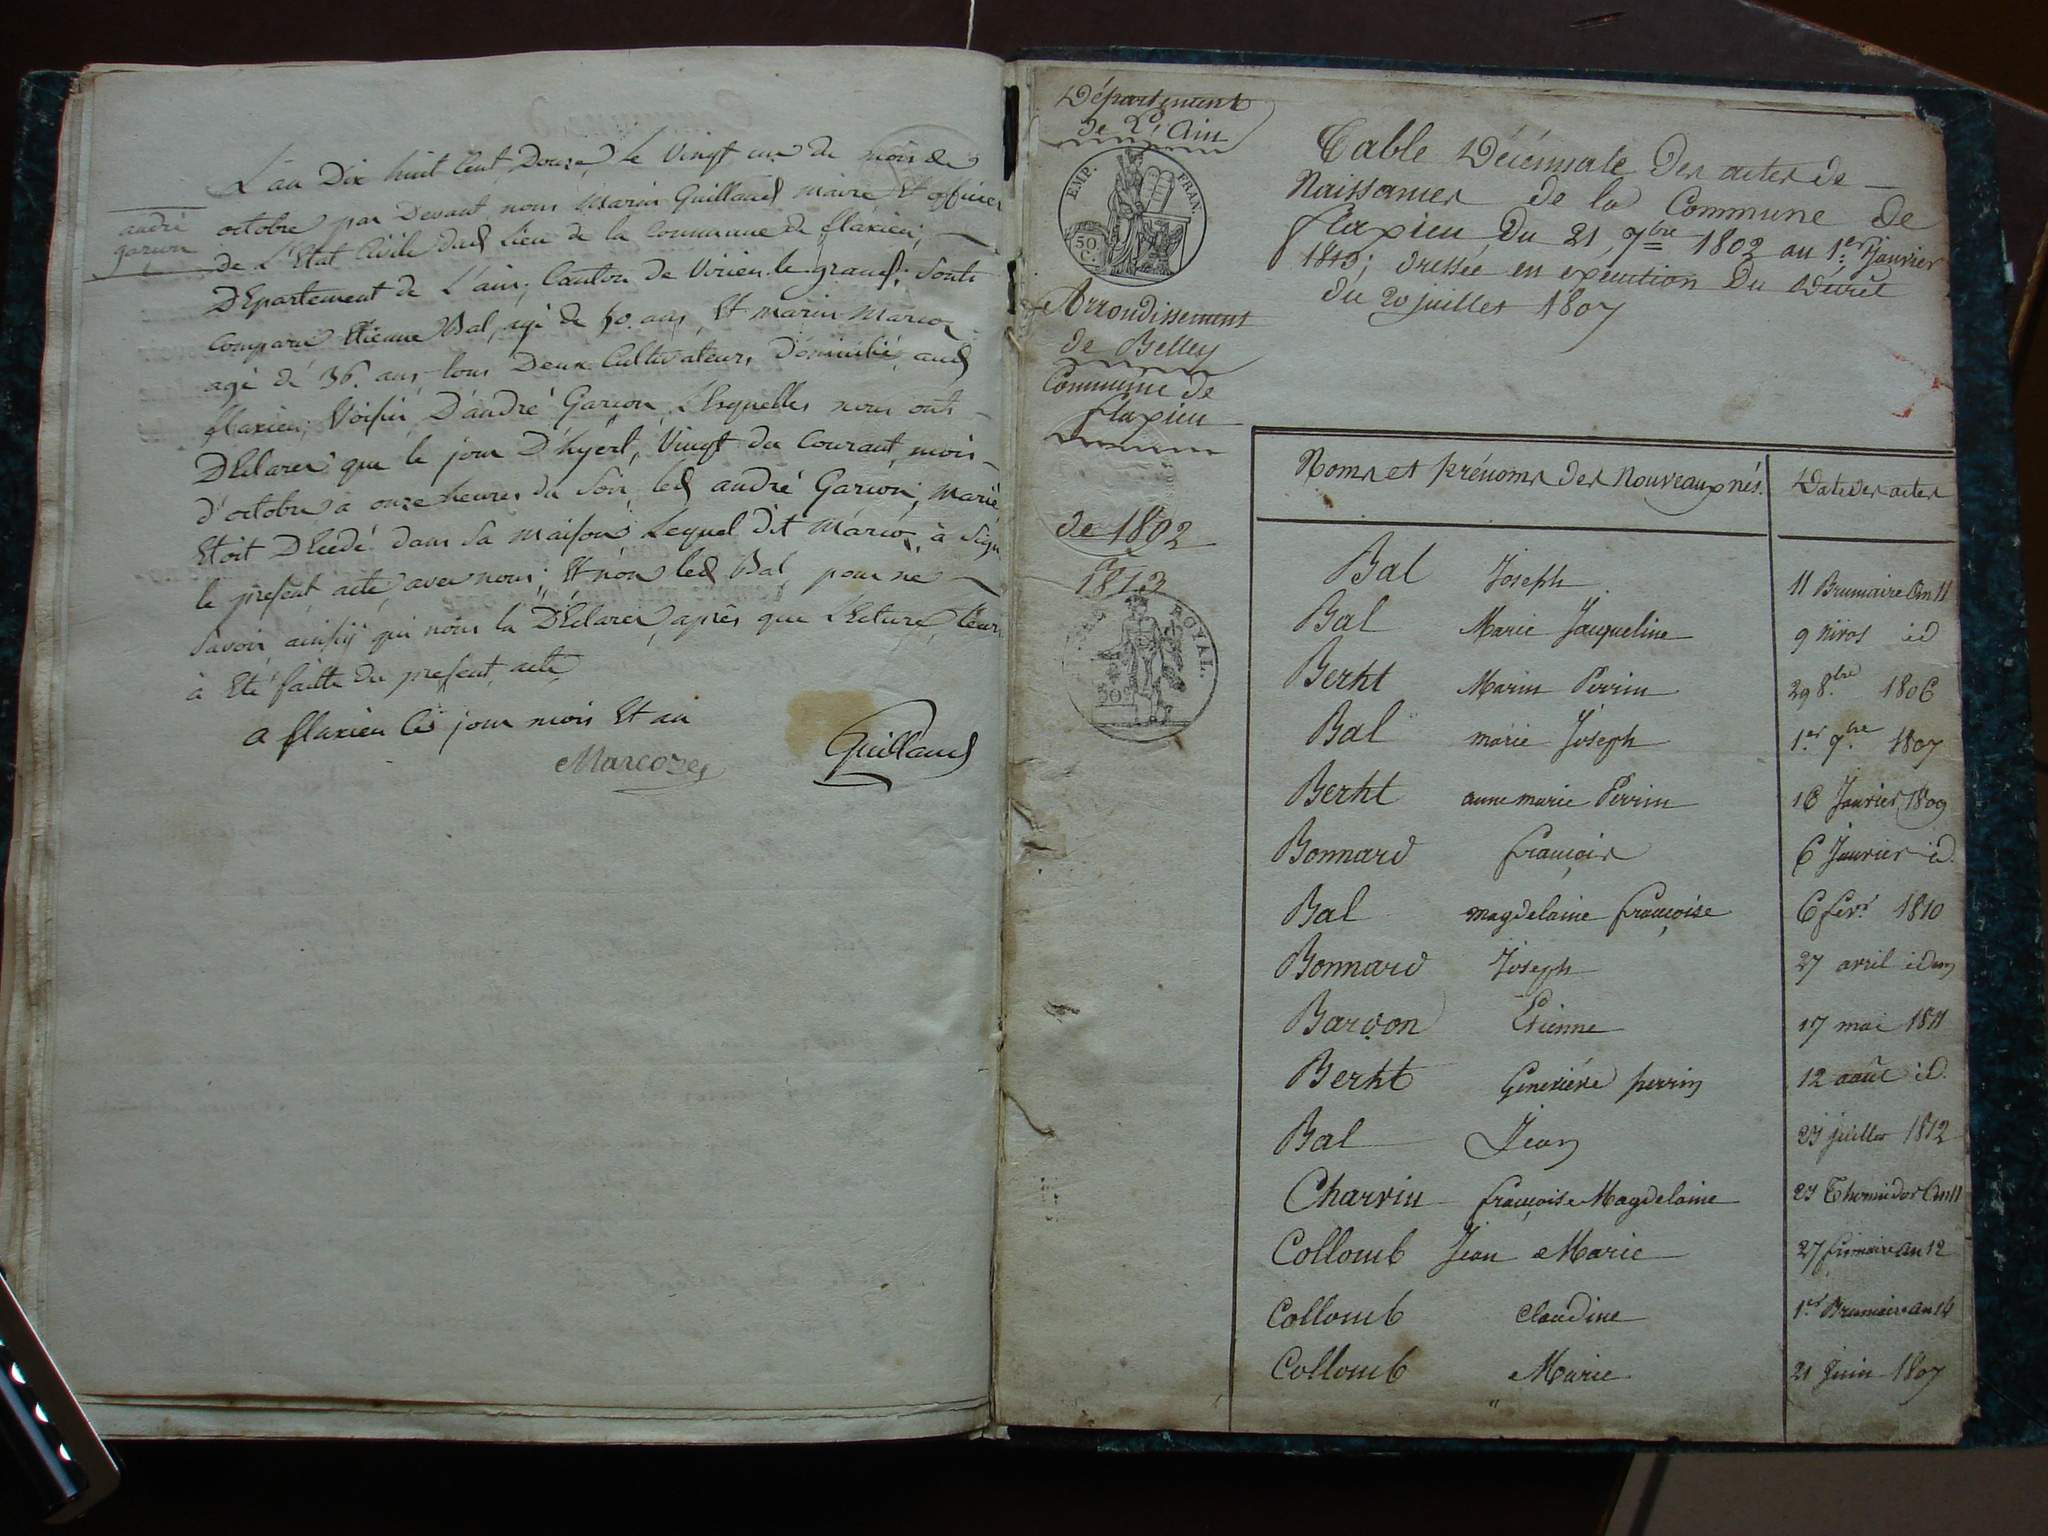 L'an Dix huit Cent Douze, le Vingt un du mois de
andré
garçon
octobre par Devant nous Marin Guilland maire Et officier
de L'Etat Civile dud. lieu de la Commune de flaxieu,
DEpartement de L'ain, Canton de Virieu le grand, sonts
Comparu Etienne Bal, agé de 50 ans, Et marin Marcoz
agé de 36. ans, tous Deux Cultivateurs, domicilié aud.
flaxieu, Voisin D'andré Garçon, Lesquelles nous onts
DEclarer que le jour D'hyert, Vingt du Courant, mois
d'octobre à onze heures du soir, led. andré Garçon, Marié
Etoit DEcedé dans sa maison, Lequel dit Marcoz, à signé
le présent acte avec nous, Et non led. Bal, pour ne
savoir ainsÿ qui nous la DEclarer, après que L'Ecture, leurs
à Eté faitte du present acte
a flaxieu les jour mois Et an
Marcoz
Guilland
Département
de L'Ain
EMP. FRAN.
50 C.
Arrondissement
de Belley
Commune de
flaxieu
de 1802
1813
ROYAL.
50
Table Décennale Des actes de
Naissances de la Commune de
flaxieu Du 21, 7bre 1802 au 1er Janvier
1813; dressée en exécution Du Décret
du 20 juillet 1807
Noms et prénoms des Nouveaux nés. Date des actes
Bal Joseph 11 Brumaire An 11
Bal Marie Jacqueline 9 nivos id
Berht Marin Perrin 29 8.bre 1806
Bal marie Joseph 1.er 9.bre 1807
Berht anne marie Perrin 18 Janvier 1809
Bonnard françois 6 Janvier id.
Bal magdelaine françoise 6 fevr. 1810
Bonnard Joseph 27 avril idem
Barçon Etienne 17 mai 1811
Berht Geneviéve perrin 12 août id.
Bal Jean 23 juillet 1812
Charvin françoise Magdelaine 23 Thermidor An 11
Collomb Jean Marie 27 frimaire An 12
Collomb Claudine 1.er Brumaire an 14
Collomb Marie 21 Juin 1807